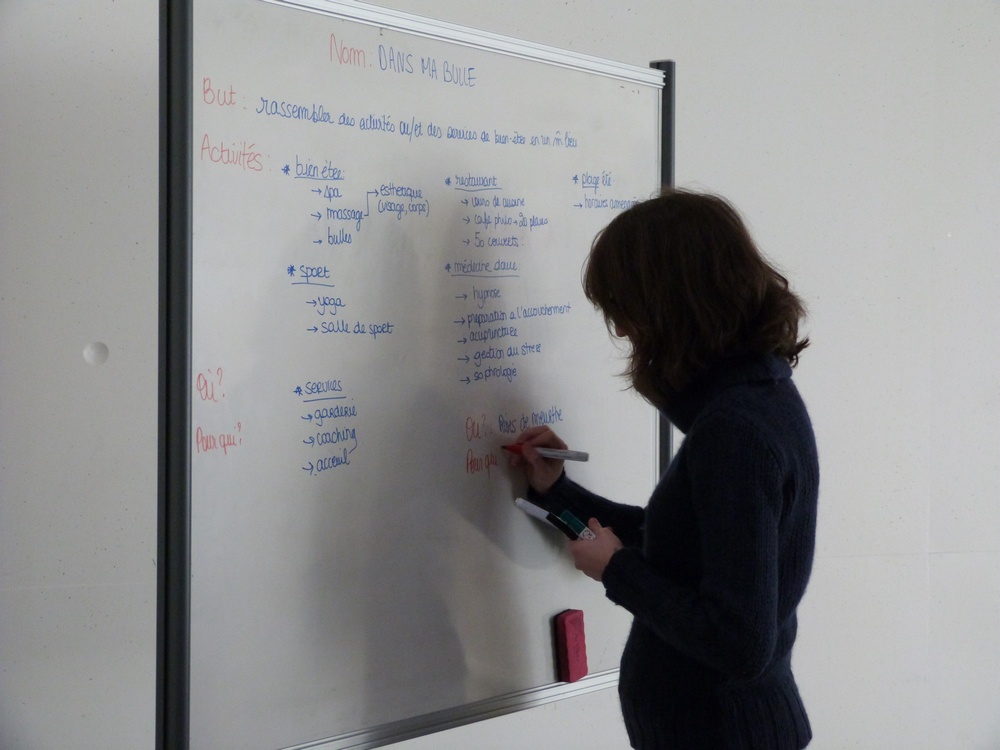 Nom: DANS MA BULLE
But: rassembler des activités ou/et des services de bien-être en un m̂ lieu
Activités:
* bien être:
→ spa
→ massage → esthétique
(visage, corps)
→ bulles
* sport
→ yoga
→ salle de sport
* services
→ garderie
→ coaching
→ acceuil
* restaurant
→ cours de cuisine
→ café philo → 20 places
→ 50 couverts
* médecine douce:
→ hypnose
→ préparation a l'accouchement
→ acupuncture
→ gestion du stress
→ sophrologie
* plage été
→ horaires
Où?
Pour qui?
Où?: de meurthe
Pour qui